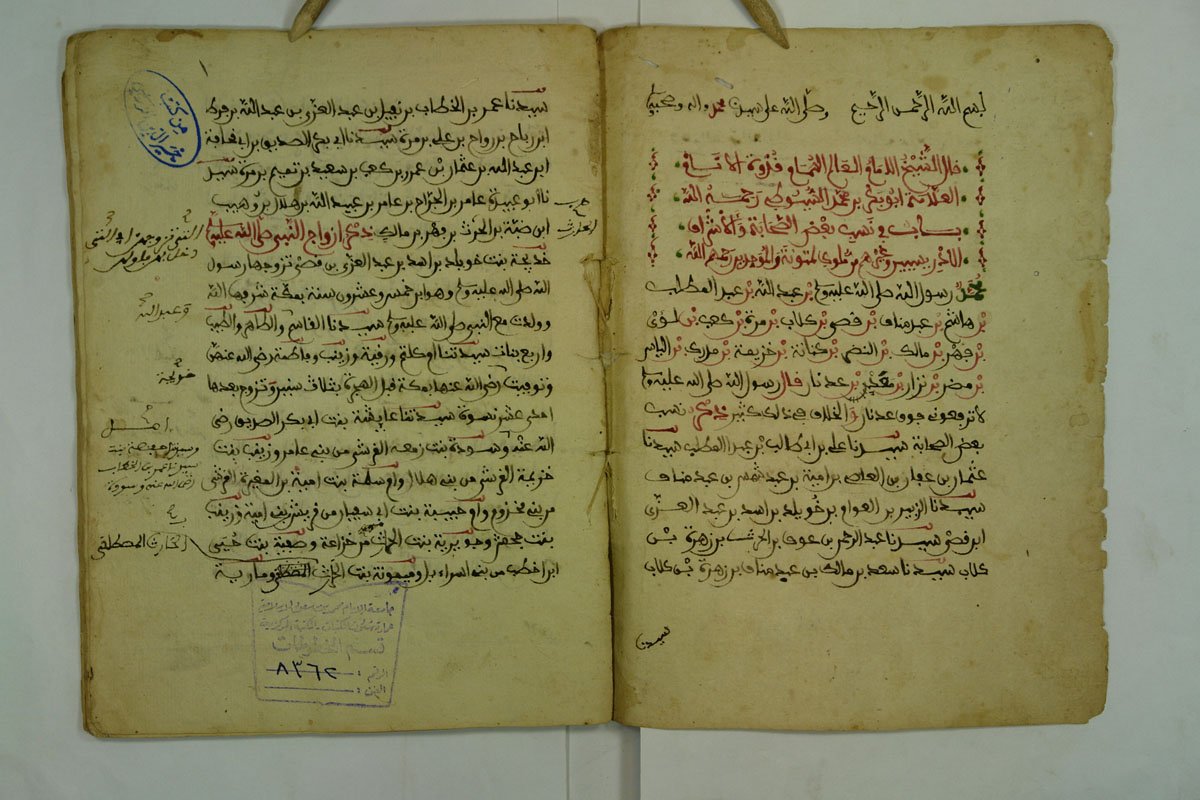 بسم الله الرحمن الرحيم وصلى الله على سيدنا محمد واله وصحبه
قال الشيخ الامام العالم الهمام قدوة الانام
العلامة ابو بكر بن محمد السيوطي رحمه الله
باب في نسب بعض الصحابة والاشراف
محمد رسول الله صلى الله عليه وسلم بن عبد الله بن عبد المطلب
بن هاشم بن عبد مناف بن قصي بن كلاب بن مرة بن كعب بن لؤي
بن فهر بن مالك بن النضر بن كنانة بن خزيمة بن مدركة بن الياس
بن مضر بن نزار بن معد بن عدنان قال رسول الله صلى الله عليه وسلم
لا ترفعوني فوق عدنان والخلاف في ذلك كثير ذكر نسب
بعض الصحابة سيدنا علي بن ابي طالب بن عبد المطلب سيدنا
عثمان بن عفان بن العاص بن امية بن عبد شمس بن عبد مناف
سيدنا الزبير بن العوام بن خويلد بن اسد بن عبد العزى
ابن قصي سيدنا عبد الرحمن بن عوف بن الحرث بن زهرة بن
كلاب سيدنا سعد بن مالك بن عبد مناف بن زهرة بن كلاب
سيدنا
سيدنا عمر بن الخطاب بن نفيل بن عبد العزى بن عبد الله بن قرط
ابن رباح بن رزاح بن علي بن مرة سيدنا ابي بكر الصديق بن ابي قحافة
ابن عبد الله بن عثمان بن عمرو بن كعب بن سعيد بن تميم بن مرة سيد
نا ابو عبيدة عامر بن الجراح بن عامر بن عبيد الله بن هلال بن وهيب
ابن ضبة بن الحرث بن فهر بن مالك ذكر ازواج النبي صلى الله عليه وسلم
خديجة بنت خويلد بن اسد بن عبد العزى بن قصي تزوجها رسول
الله صلى الله عليه وسلم وهو ابن خمس وعشرون سنة بمكة شرفها الله
وولدت مع النبي صلى الله عليه وسلم سيدنا القاسم والطاهر والطيب
واربع بنات سيدتنا ام كلثوم ورقية وزينب وفاطمة رضي الله عنهن
وتوفيت رضي الله عنها بمكة قبل الهجرة بثلاث سنين وتزوج بعدها
احدى عشر نسوة سيدتنا عايشة بنت ابي بكر الصديق رضي
الله عنه وسودة بنت زمعة القرشي من بني عامر وزينب بنت
خزيمة القرشي من بني هلال وام سلمة بنت امية بن المغيرة القرشي
من بني مخزوم وام حبيبة بنت ابي سفيان من قريش بني امية وزينب
بنت جحش وجويرية بنت الحرث من خزاعة وصفية بنت حيي
ابن اخطب من بني اسراءيل وميمونة بنت الحرث ومارية
وعبد الله
خديجة
الحارث المصطلقي
من كتب
جامعة الإمام محمد بن سعود الإسلامية
عمادة شئون المكتبات المكتبة المركزية
قسم المخطوطات
الرقم : ٨٣٦٢
الفن :